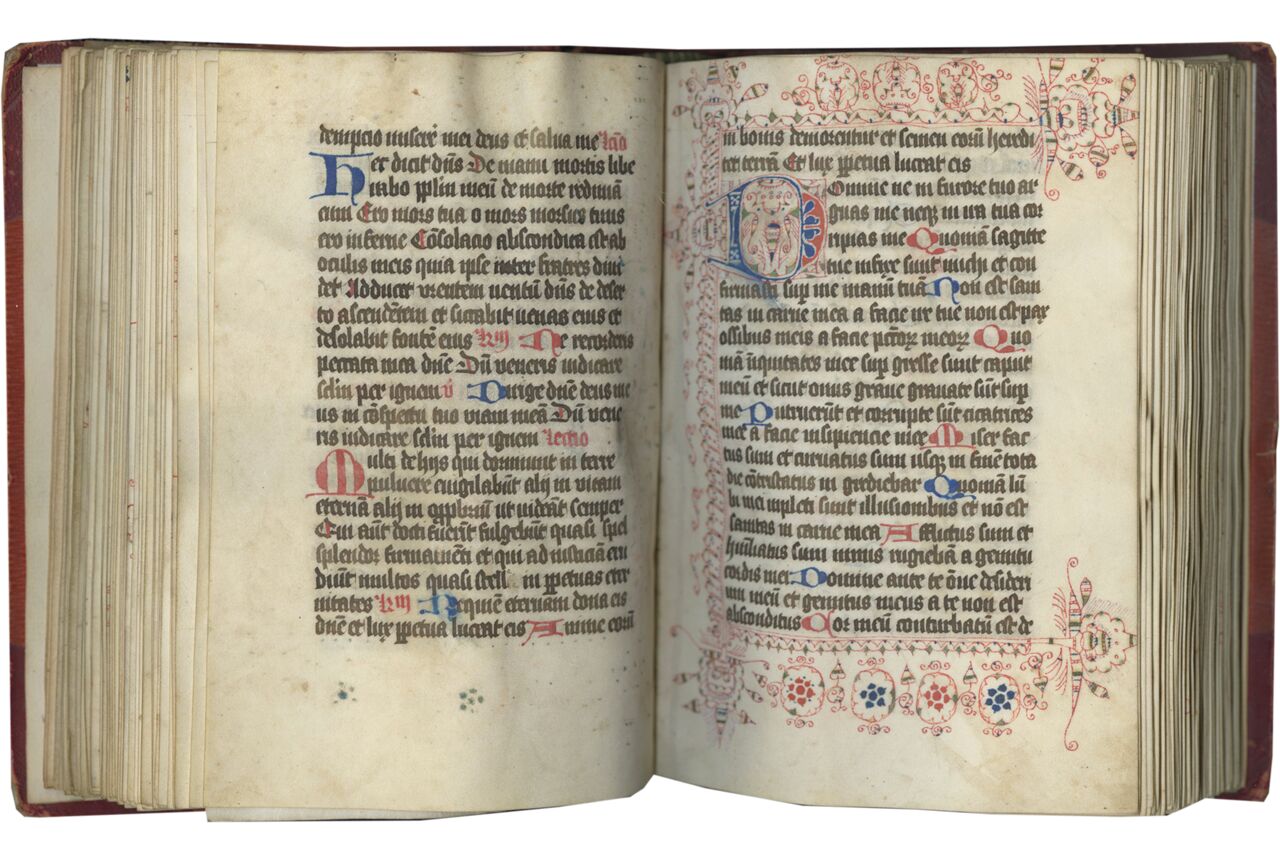 demptio miserē mei deus et salua me lcō
Hec dicit dñs De manu mortis libe
rabo pplm meū de morte redimā
eum Ero mors tua o mors morsus tuus
ero inferne Cōsolacio abscondita est ab
oculis meis quia ipse inter fratres diui
det Adducet vrentem uentū dñs de deser
to ascendētem et siccabit uenas eius et
desolabit fontē eius Ne recorderis
peccata mea dñe Dū veneris iudicare
sclm per ignem v̄ Dirige dñe deus me
us in cōspectu tuo viam meā Dū vene
ris iudicare sclm per ignem lectio
Multi de hijs qui dormiunt in terre
puluere euigilabūt alij in vitam
eternā alij in opprbriū ut videāt semper
Qui aūt docti fuerīt fulgebūt quasi spel
splendor firmamēti et qui ad iusticiā eru
diūt multos quasi stell in ppetuas eter
nitates Requiē eternam dona eis
dñe et lux ppetua luceat eis Anime eorū
in bonis demorentur et semen eorū heredi
tet terrā Et lux ppetua luceat eis
Domine ne in furore tuo ar
guas me neq in ira tua cor
ripias me Quoniā sagitte
tue infixe sunt michi et con
firmasti sup me manū tuā Non est sani
tas in carne mea a facie ire tue non est pax
ossibus meis a facie pctōꝝ meoꝝ Quo
niā iniquitates mee sup gresse sunt caput
meū et sicut onus graue grauate sūt sup
me Putruerūt et corrupte sūt cicatrices
mee a facie insipiencie mee Miser fac
tus sum et curuatus sum usq in finē tota
die cōtristatus in grediebar Quoniā lū
bi mei impleti sunt illusionibus et nō est
sanitas in carne mea Afflictus sum et
humiliatus sum nimis rugiebā a gemitu
cordis mei Domine ante te ōne desideri
um meū et gemitus meus a te non est
absconditus Cor meū conturbatū est de